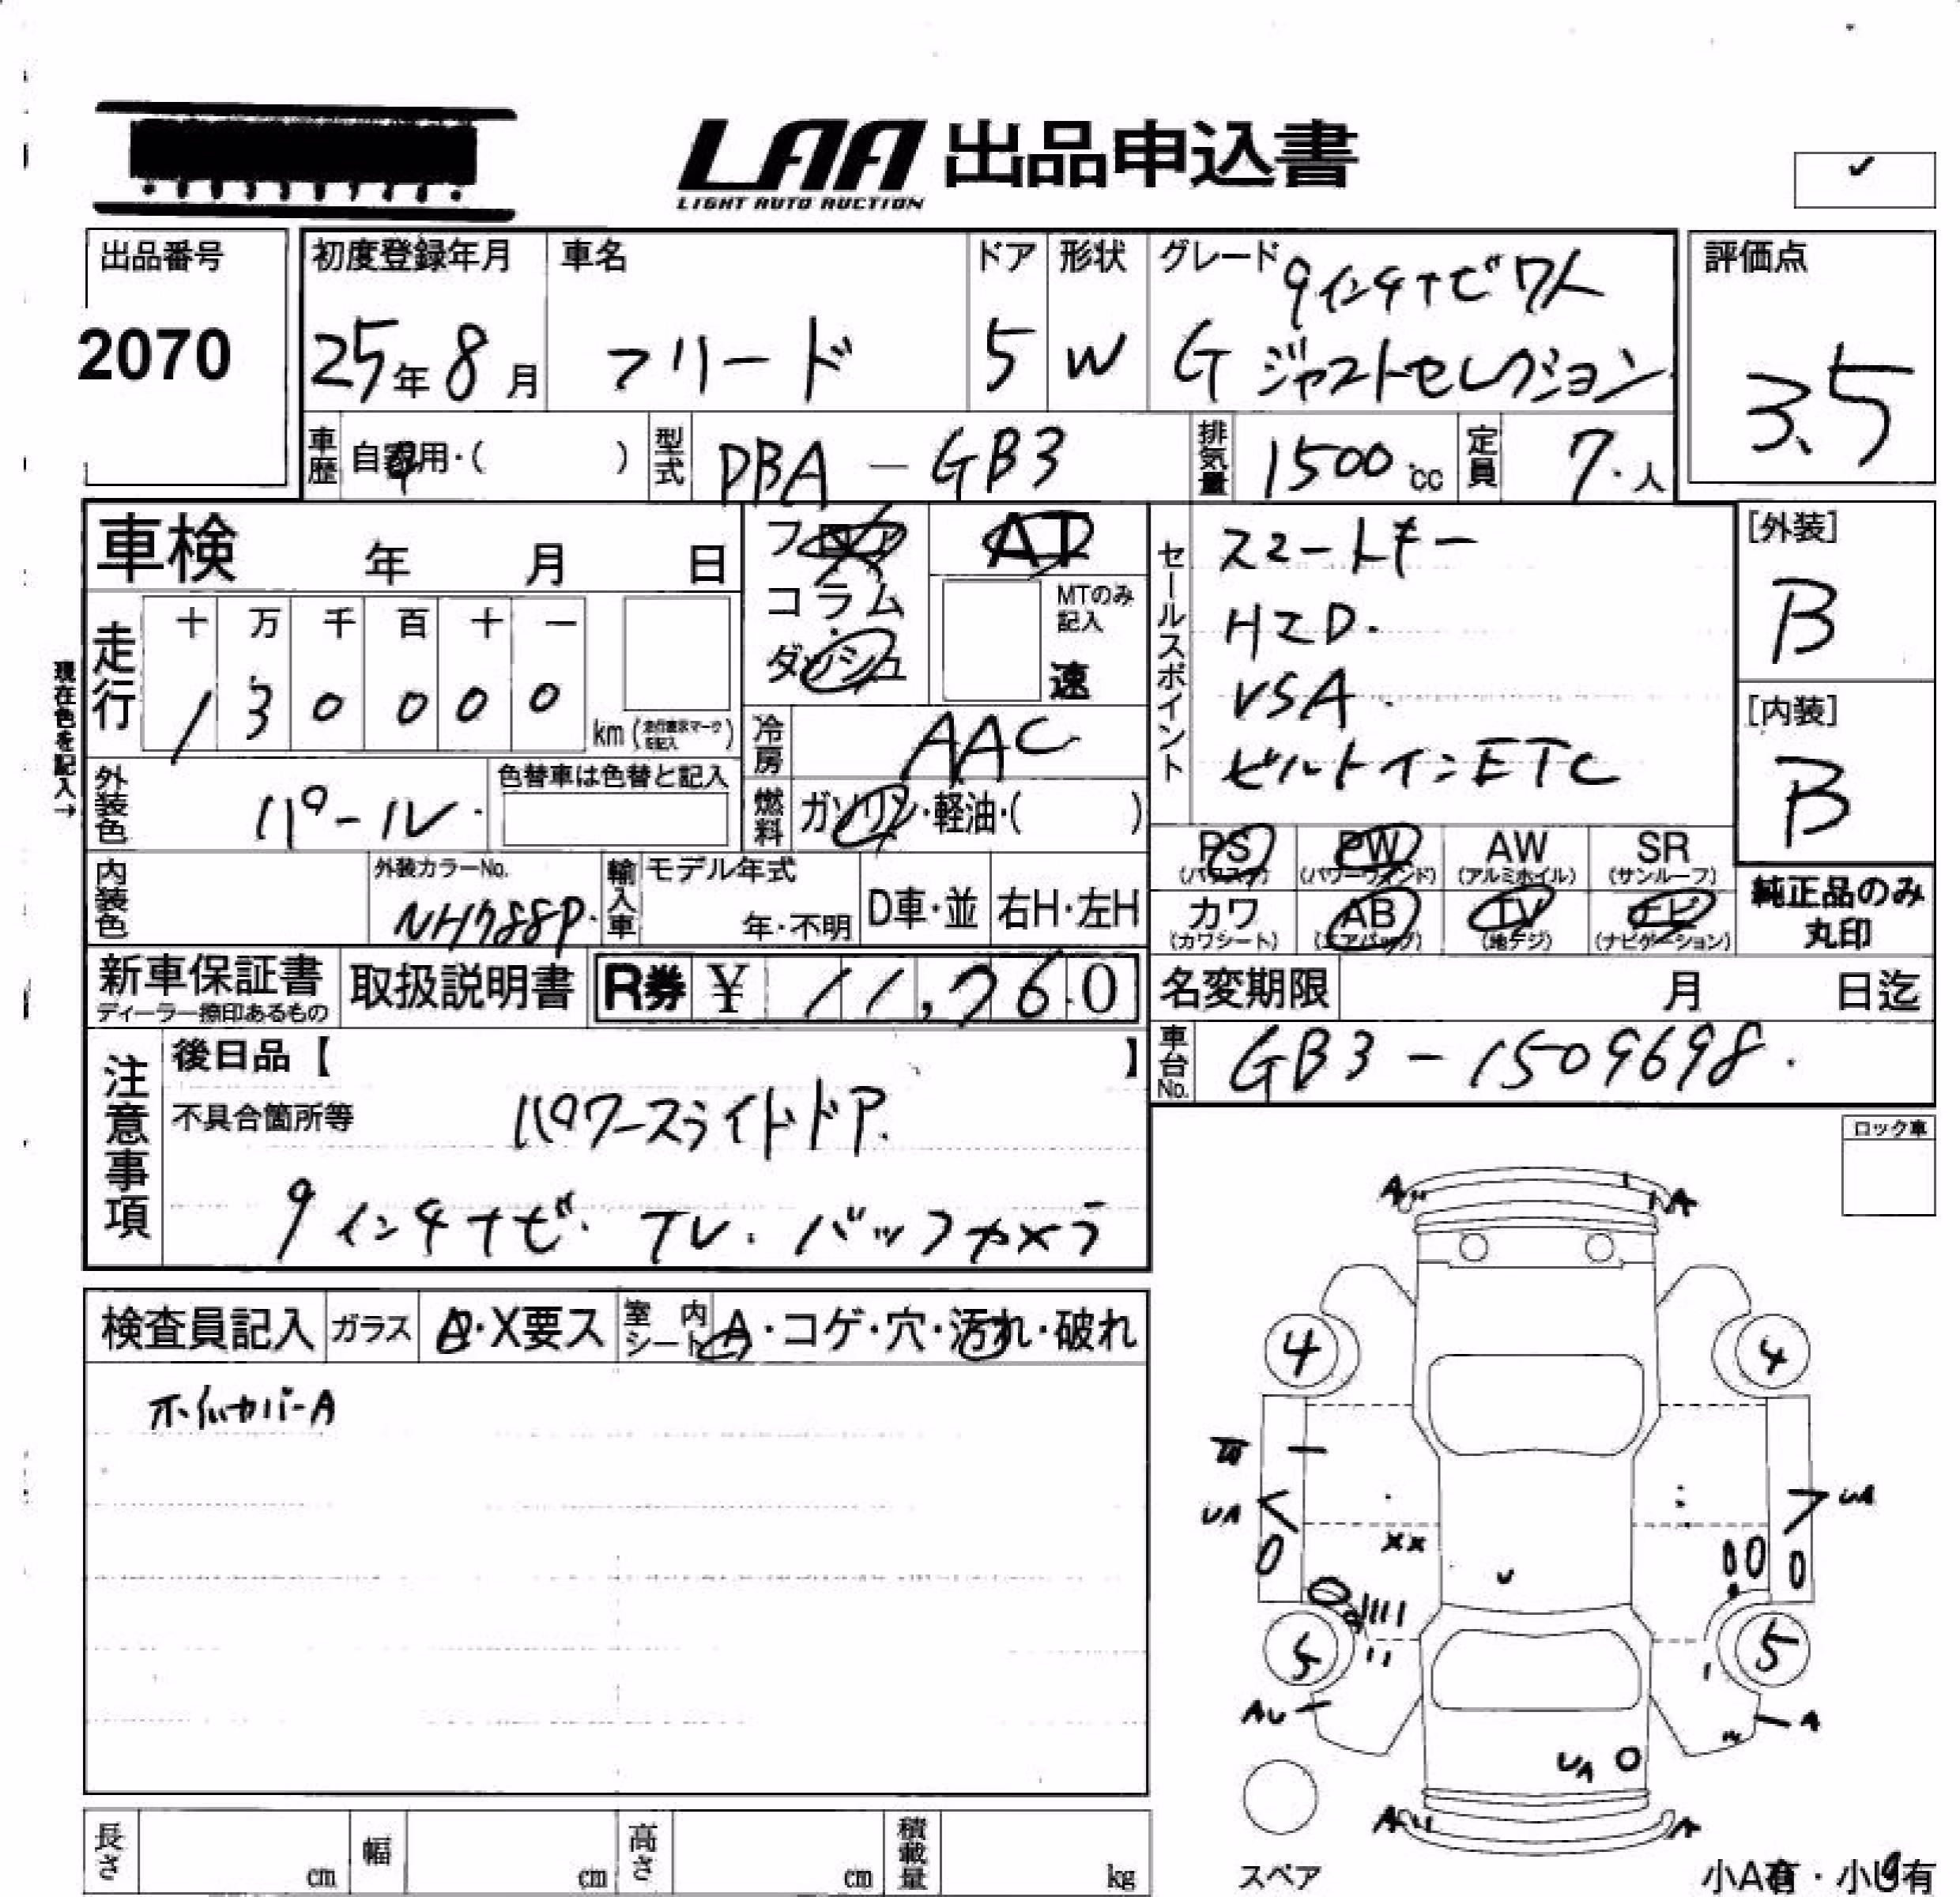 LAA 出品申込書
LIGHT AUTO AUCTION
✓
出品番号 初度登録年月 車名 ドア 形状 グレード 評価点
9インチナビ 7人
2070 25年8月 フリード 5 W G ジャストセレクション 3.5
車歴 自家用・( ) 型式 DBA-GB3 排気量 1500cc 定員 7人
車検 年 月 日
フロア AT
コラム MTのみ記入
ダッシュ 速
セールスポイント スマートキー
HID.
VSA.
ビルトインETC
[外装]
B
[内装]
B
現在色を記入→
走行 十 万 千 百 十 一
1 3 0 0 0 0 km
冷房 AAC
外装色 パール 色替車は色替と記入
燃料 ガソリン・軽油・( )
PS (パワステ) PW (パワーウィンド) AW (アルミホイル) SR (サンルーフ)
カワ (カワシート) AB (エアバッグ) TV (地デジ) (ナビゲーション)
純正品のみ
丸印
内装色 外装カラーNo. NH788P. 輸入車 モデル年式 年・不明 D車・並 右H・左H
新車保証書 取扱説明書 R券 ¥ 11,760 名変期限 月 日迄
ディーラー捺印あるもの
車台No. GB3-1509698.
注意事項 後日品【 】
不具合箇所等 パワースライドドア.
9インチナビ. TV. バックカメラ
検査員記入 ガラス A・X要ス 室内シート A・コゲ・穴・汚れ・破れ
ホイルカバーA
ロック車
A A
4 4
UA UA
XX
U
5 5
AU A
UA
A A
スペア
小A有・小U有
長さ cm 幅 cm 高さ cm 積載量 kg